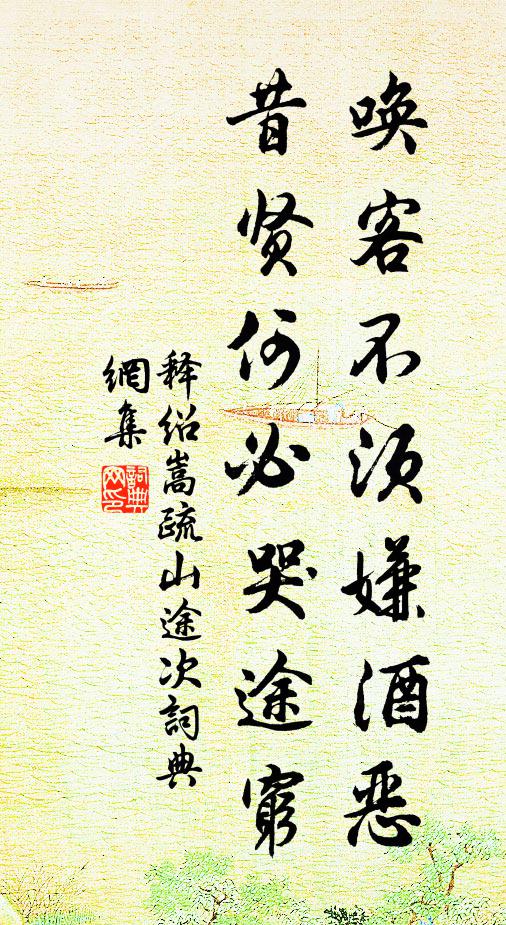 唤客不须嫌酒恶
昔贤何必哭途窮
释绍嵩疏山途次詞典
網集
詞典網印